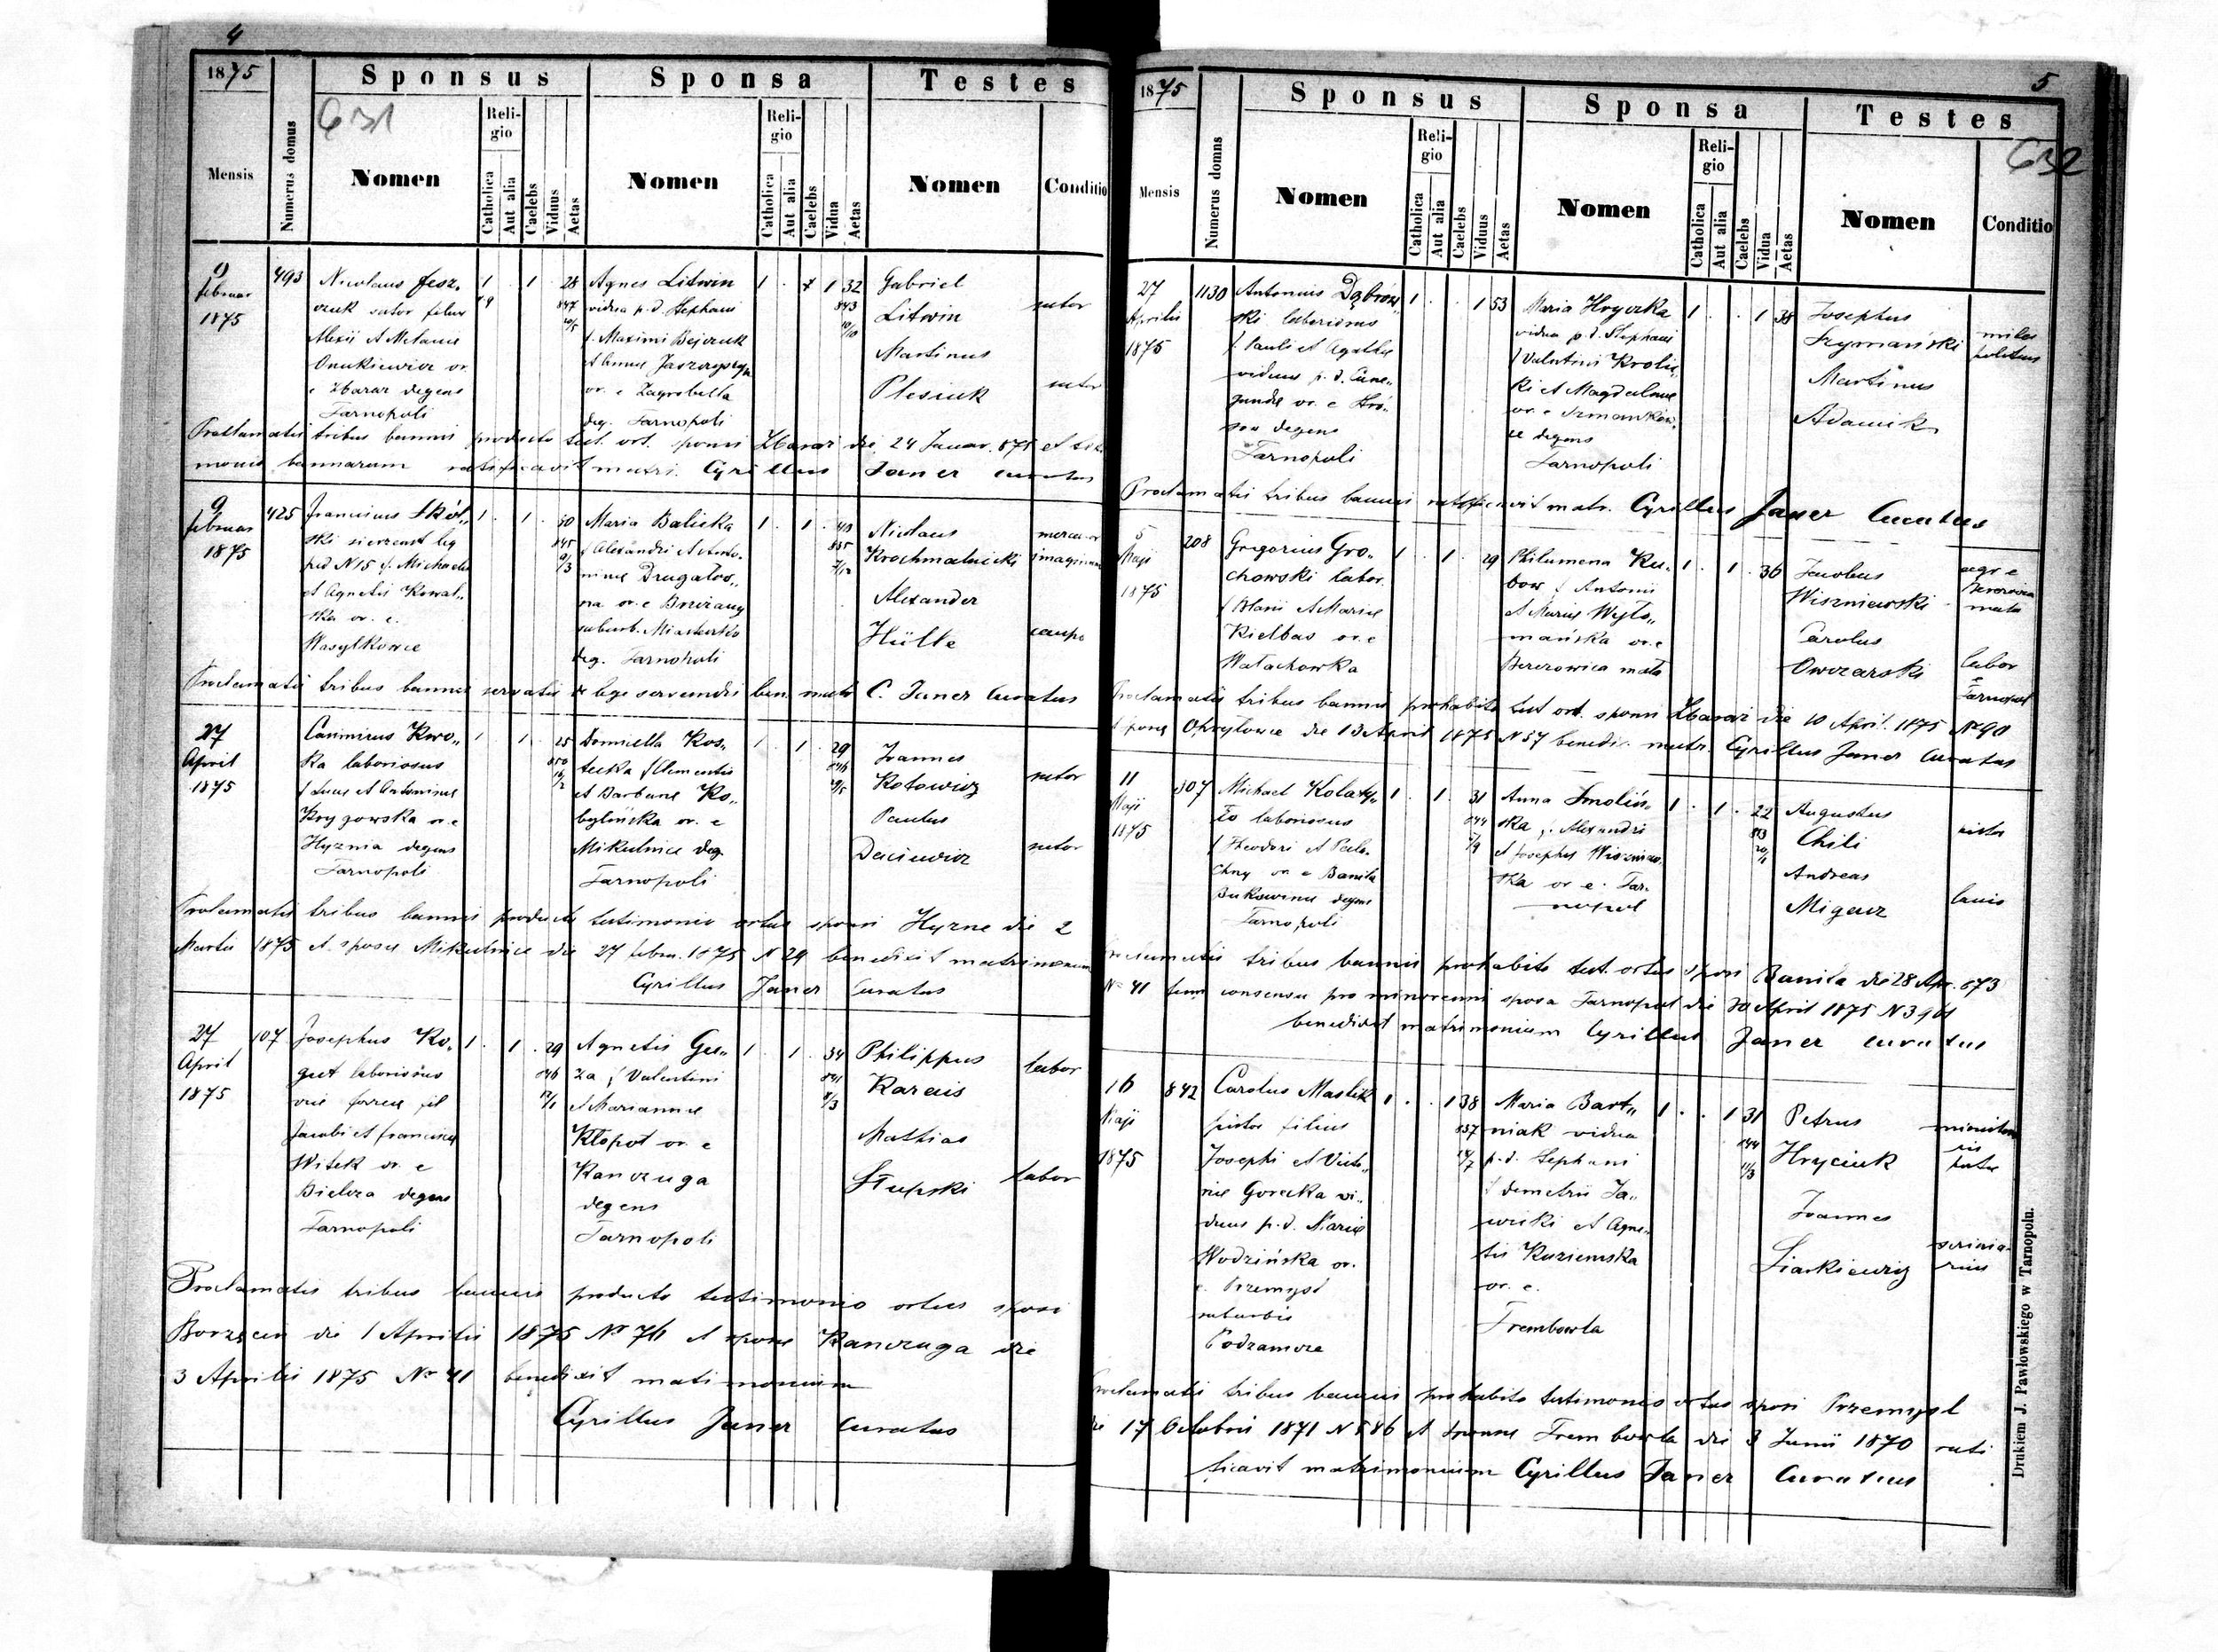 4
1875 Sponsus Sponsa Testes
631
Mensis Numerus domus Nomen Religio Catholica Aut alia Caelebs Viduus Aetas Nomen Religio Catholica Aut alia Caelebs Vidua Aetas Nomen Conditio
9 februar 1875
493
Nicolaus Jesz„
czuk sutor filius
Alexii et Melanie
Onukiewicz or.
e Zbaraz degens
Tarnopoli
1 . 1 . 28
847
Agnes Litwin
vidua p.d. Stephani
f. Maximi Bejczuk
et Annae
or. e Zagrobella
deg. Tarnopoli
1 . 1 32
843
Gabriel
Litwin
sutor
Martinus
Plesiuk
sutor
Proclamatis tribus bannis producto test. ort. sponsi Zbaraz die 24 Januar. 875 et
monio bannorum ratificavit matri. Cyrillus Janer curatus
9 februar 1875
425
Franciscus Skól„
ski
ped N 15 f. Michaelis
et Agnetis Kowal„
ska or. e.
Wasylkowce
1 . 1 . 30
845
9/3
Maria Baliska
f Alexandri et Anto„
ninae Drugalos„
na or. e Brzezany
suburb. Miasteczko
deg. Tarnopoli
1 . 1 . 40
835
7/12
Nicolaus
Krochmalnicki
Alexander
Hülle
caupo
Proclamatis tribus bannis servatis de lege servandis ben. matr C. Janer Curatus
27 April 1875
Casimirus Kwo„
ka laboriosus
f Lucae et Antoninae
Krygowska or. e
Hyznia degens
Tarnopoli
1 . 1 . 25
850
16/2
Domicella Kos„
tecka f Clementis
et Barbarae Ko„
bylińska or. e
Mikulince deg.
Tarnopoli
1 . 1 . 29
846
29/5
Joannes
Kotowicz
sutor
Paulus
Daciewicz
sutor
Proclamatis tribus bannis producto testimonio ortus sponsi Hyzne die 2
Martii 1875 et sponsae Mikulince die 27 febru. 1875 N 29 benedixit matrimonium
Cyrillus Janer Curatus
27 April 1875
107
Josephus Ko„
gut laboriosus
viae ferreae fil
Jacobi et franciscae
Witek or. e
Bielcza degens
Tarnopoli
1 . 1 . 29
846
12/1
Agnetis Gu„
za f Valentini
et Mariannae
Kłopot or. e
Kanczuga
degens
Tarnopoli
1 . 1 . 34
841
8/3
Philippus
Karais
labor
Mathias
Słupski
labor
Proclamatis tribus bannis producto testimonio ortus sponsi
Borzęcin die 1 Aprilis 1875 No 76 et sponsae Kanczuga die
3 Aprilis 1875 No 41 benedixit matrimonium
Cyrillus Janer curatus
5
1875 Sponsus Sponsa Testes
632
Mensis Numerus domus Nomen Religio Catholica Aut alia Caelebs Viduus Aetas Nomen Religio Catholica Aut alia Caelebs Vidua Aetas Nomen Conditio
27 Aprilis 1875
1130
Antonius Dąbrow„
ski laboriosus
f. Pauli et Agathae
viduus p.d. Cune„
gundae or. e
degens
Tarnopoli
1 . . 1 53
Maria Hryczka
vidua p.d. Stephani
f Valentini Krolic„
ki et Magdalenae
or. e
degens
Tarnopoli
1 . . 1 38
Josephus
Szymański
miles
Martinus
Adamik
Proclamatis tribus bannis ratificavit matr. Cyrillus Janer Curatus
5 Maji 1875
208
Gregorius Gro„
chowski labor.
f Blasii et Mariae
Kielbas or. e
Wałachowka
1 . 1 . 29
Philumena Ku„
bow f Antonii
et Mariae Wyto„
mańska or. e
Berezowica mała
1 . 1 . 36
Jacobus
Wiszniewski
agr e
Berezowica
mała
Carolus
Owczarski
labor
e
Tarnopol
Proclamatis tribus bannis prohabito test ort. sponsi Zbaraz die 10 April. 1875 No 90
et sponsae Opryłowce die 13 April 1875 N 57 benedix. matr. Cyrillus Janer Curatus
11 Maji 1875
307
Michael Kolaty„
ło laboriosus
f Theodori et Pela„
or e Banila
Bukowina degens
Tarnopoli
1 . 1 . 31
844
7/9
Anna Smoliń„
ska f. Alexandri
et Josephae Wiszniew„
ska or. e. Tar„
nopol
1 . 1 . 22
853
20/1
Augustus
Chili
pistor
Andreas
Migacz
lanio
Proclamatis tribus bannis prohabito test. ortus sponsi Banila die 28 Apr. 873
No 41 tum consensu pro minorenni sponsa Tarnopol die 30 April 1875 N 3961
benedixit matrimonium Cyrillus Janer curatus
16 Maji 1875
842
Carolus Mastik
pistor filius
Josephi et Victo„
riae Gorecka vi„
duus p.d. Mariae
Wodzińska or.
e. Przemysl
suburbii
Podzamcze
1 . . 1 38
837
14/7
Maria Bart„
niak vidua
p.d. Stephani
f demetrii Ja„
wicki et Agne„
tis Kuziemska
or. e.
Trembowla
1 . . 1 31
844
11/3
Petrus
Hryciuk
Joannes
Siarkiewicz
scrinia„
rius
Proclamatis tribus bannis prohabito testimonio ortus sponsi Przemysl
die 17 Octobris 1871 N 586 et sponsae Trembowla die 3 Junii 1870 rati
ficavit matrimonium Cyrillus Janer Curatus
Drukiem J. Pawłowskiego w Tarnopolu.